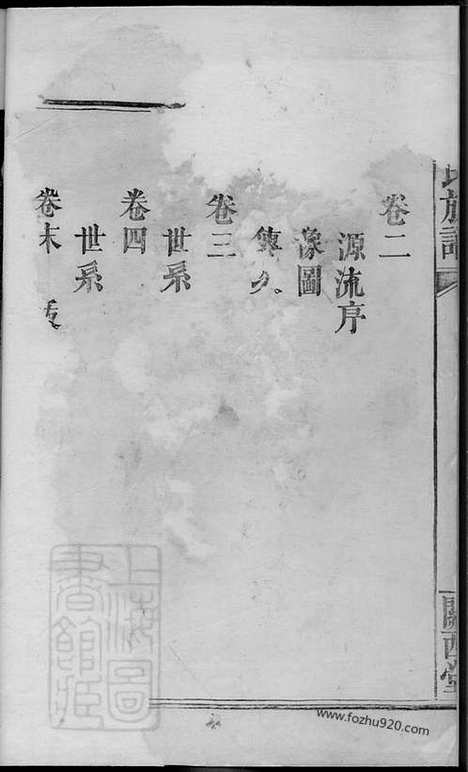 族譜
關西堂
卷二
源流序
像圖
卷三
世系
卷四
世系
卷末
上海圖書館藏
www.fozhu920.com